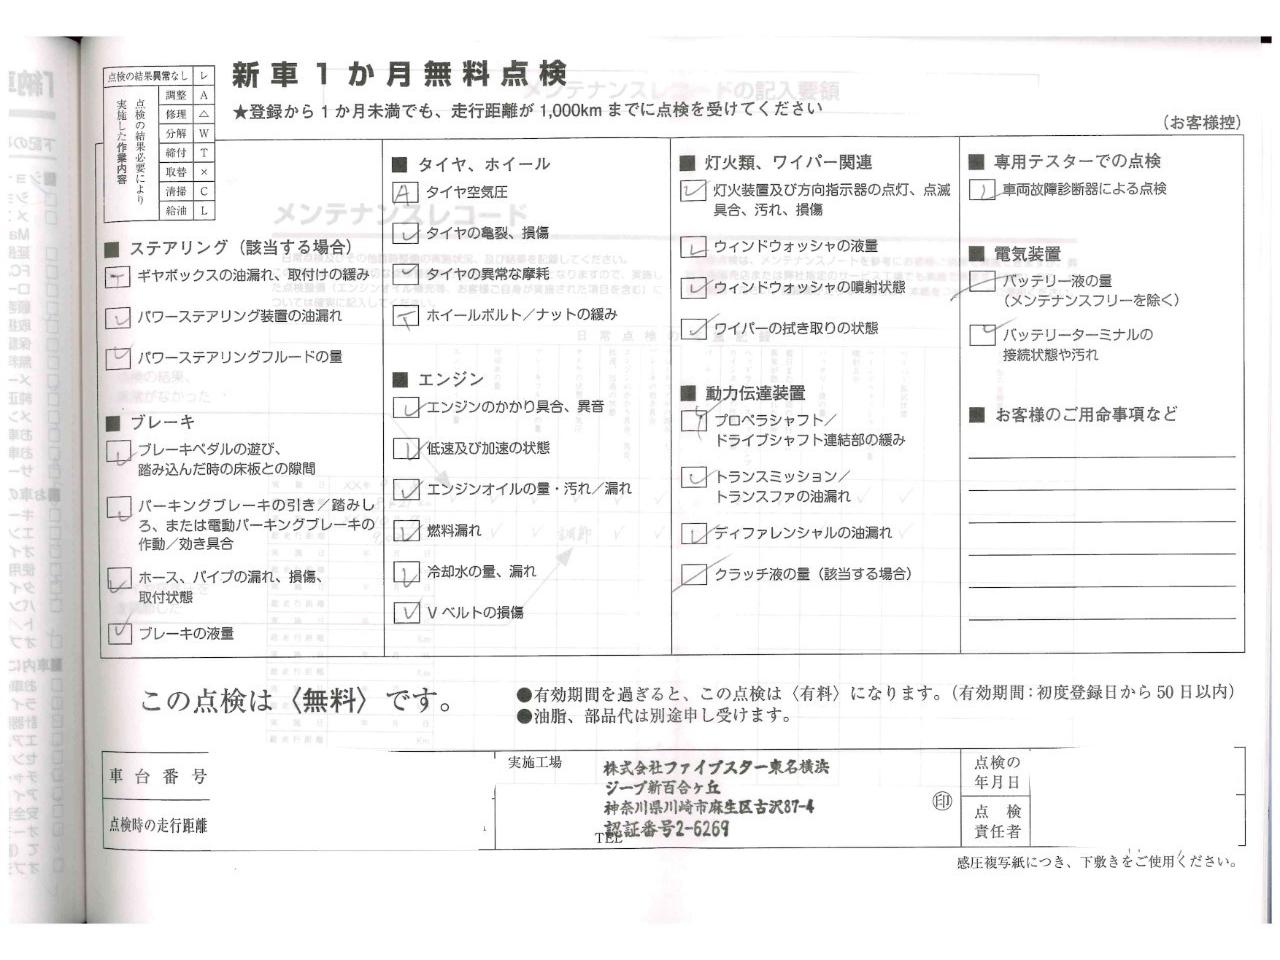 新車1か月無料点検
★登録から1か月未満でも、走行距離が1,000kmまでに点検を受けてください
(お客様控)
点検の結果異常なし レ
点検の結果必要により
実施した作業内容
調整 A
修理 △
分解 W
締付 T
取替 ×
清掃 C
給油 L
■ ステアリング(該当する場合)
ギヤボックスの油漏れ、取付けの緩み
パワーステアリング装置の油漏れ
パワーステアリングフルードの量
■ ブレーキ
ブレーキペダルの遊び、
踏み込んだ時の床板との隙間
パーキングブレーキの引き/踏みし
ろ、または電動パーキングブレーキの
作動/効き具合
ホース、パイプの漏れ、損傷、
取付状態
ブレーキの液量
■ タイヤ、ホイール
A タイヤ空気圧
タイヤの亀裂、損傷
タイヤの異常な摩耗
T ホイールボルト/ナットの緩み
■ エンジン
エンジンのかかり具合、異音
低速及び加速の状態
エンジンオイルの量・汚れ/漏れ
燃料漏れ
冷却水の量、漏れ
Vベルトの損傷
■ 灯火類、ワイパー関連
灯火装置及び方向指示器の点灯、点滅
具合、汚れ、損傷
ウィンドウォッシャの液量
ウィンドウォッシャの噴射状態
ワイパーの拭き取りの状態
■ 動力伝達装置
プロペラシャフト/
ドライブシャフト連結部の緩み
トランスミッション/
トランスファの油漏れ
ディファレンシャルの油漏れ
クラッチ液の量(該当する場合)
■ 専用テスターでの点検
車両故障診断器による点検
■ 電気装置
バッテリー液の量
(メンテナンスフリーを除く)
バッテリーターミナルの
接続状態や汚れ
■ お客様のご用命事項など
この点検は〈無料〉です。
●有効期間を過ぎると、この点検は〈有料〉になります。(有効期間:初度登録日から50日以内)
●油脂、部品代は別途申し受けます。
車台番号
点検時の走行距離
実施工場
株式会社ファイブスター東名横浜
ジープ新百合ヶ丘
神奈川県川崎市麻生区古沢87-4
認証番号2-6269
TEL
印
点検の
年月日
点検
責任者
感圧複写紙につき、下敷きをご使用ください。